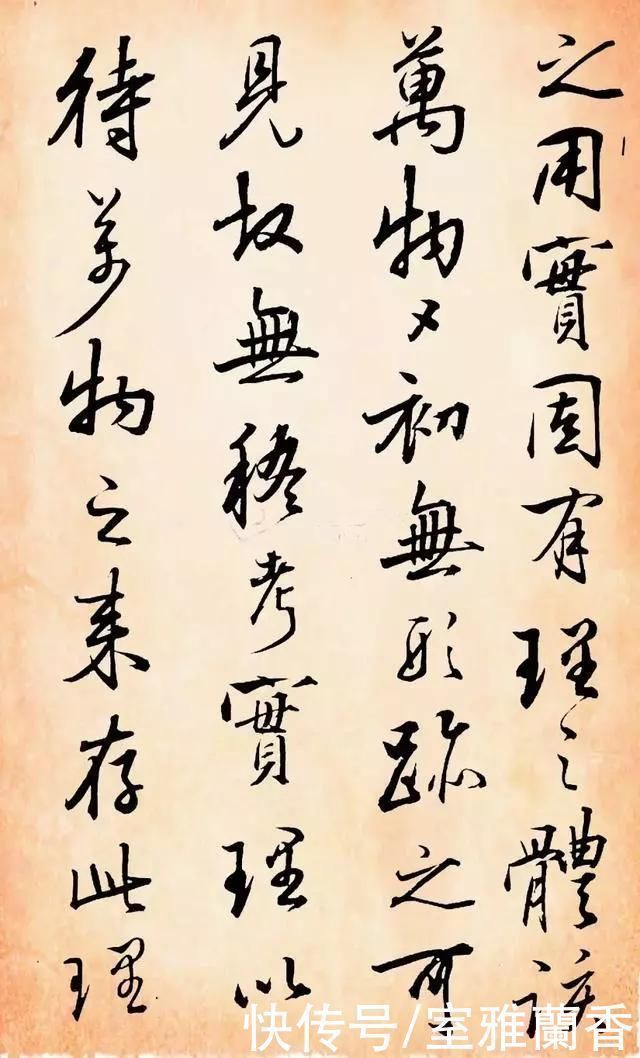 之用實固有理之體該
萬物之初無形跡之可
見故無稽考實理以
待萬物之来存此理
快传号/室雅蘭香